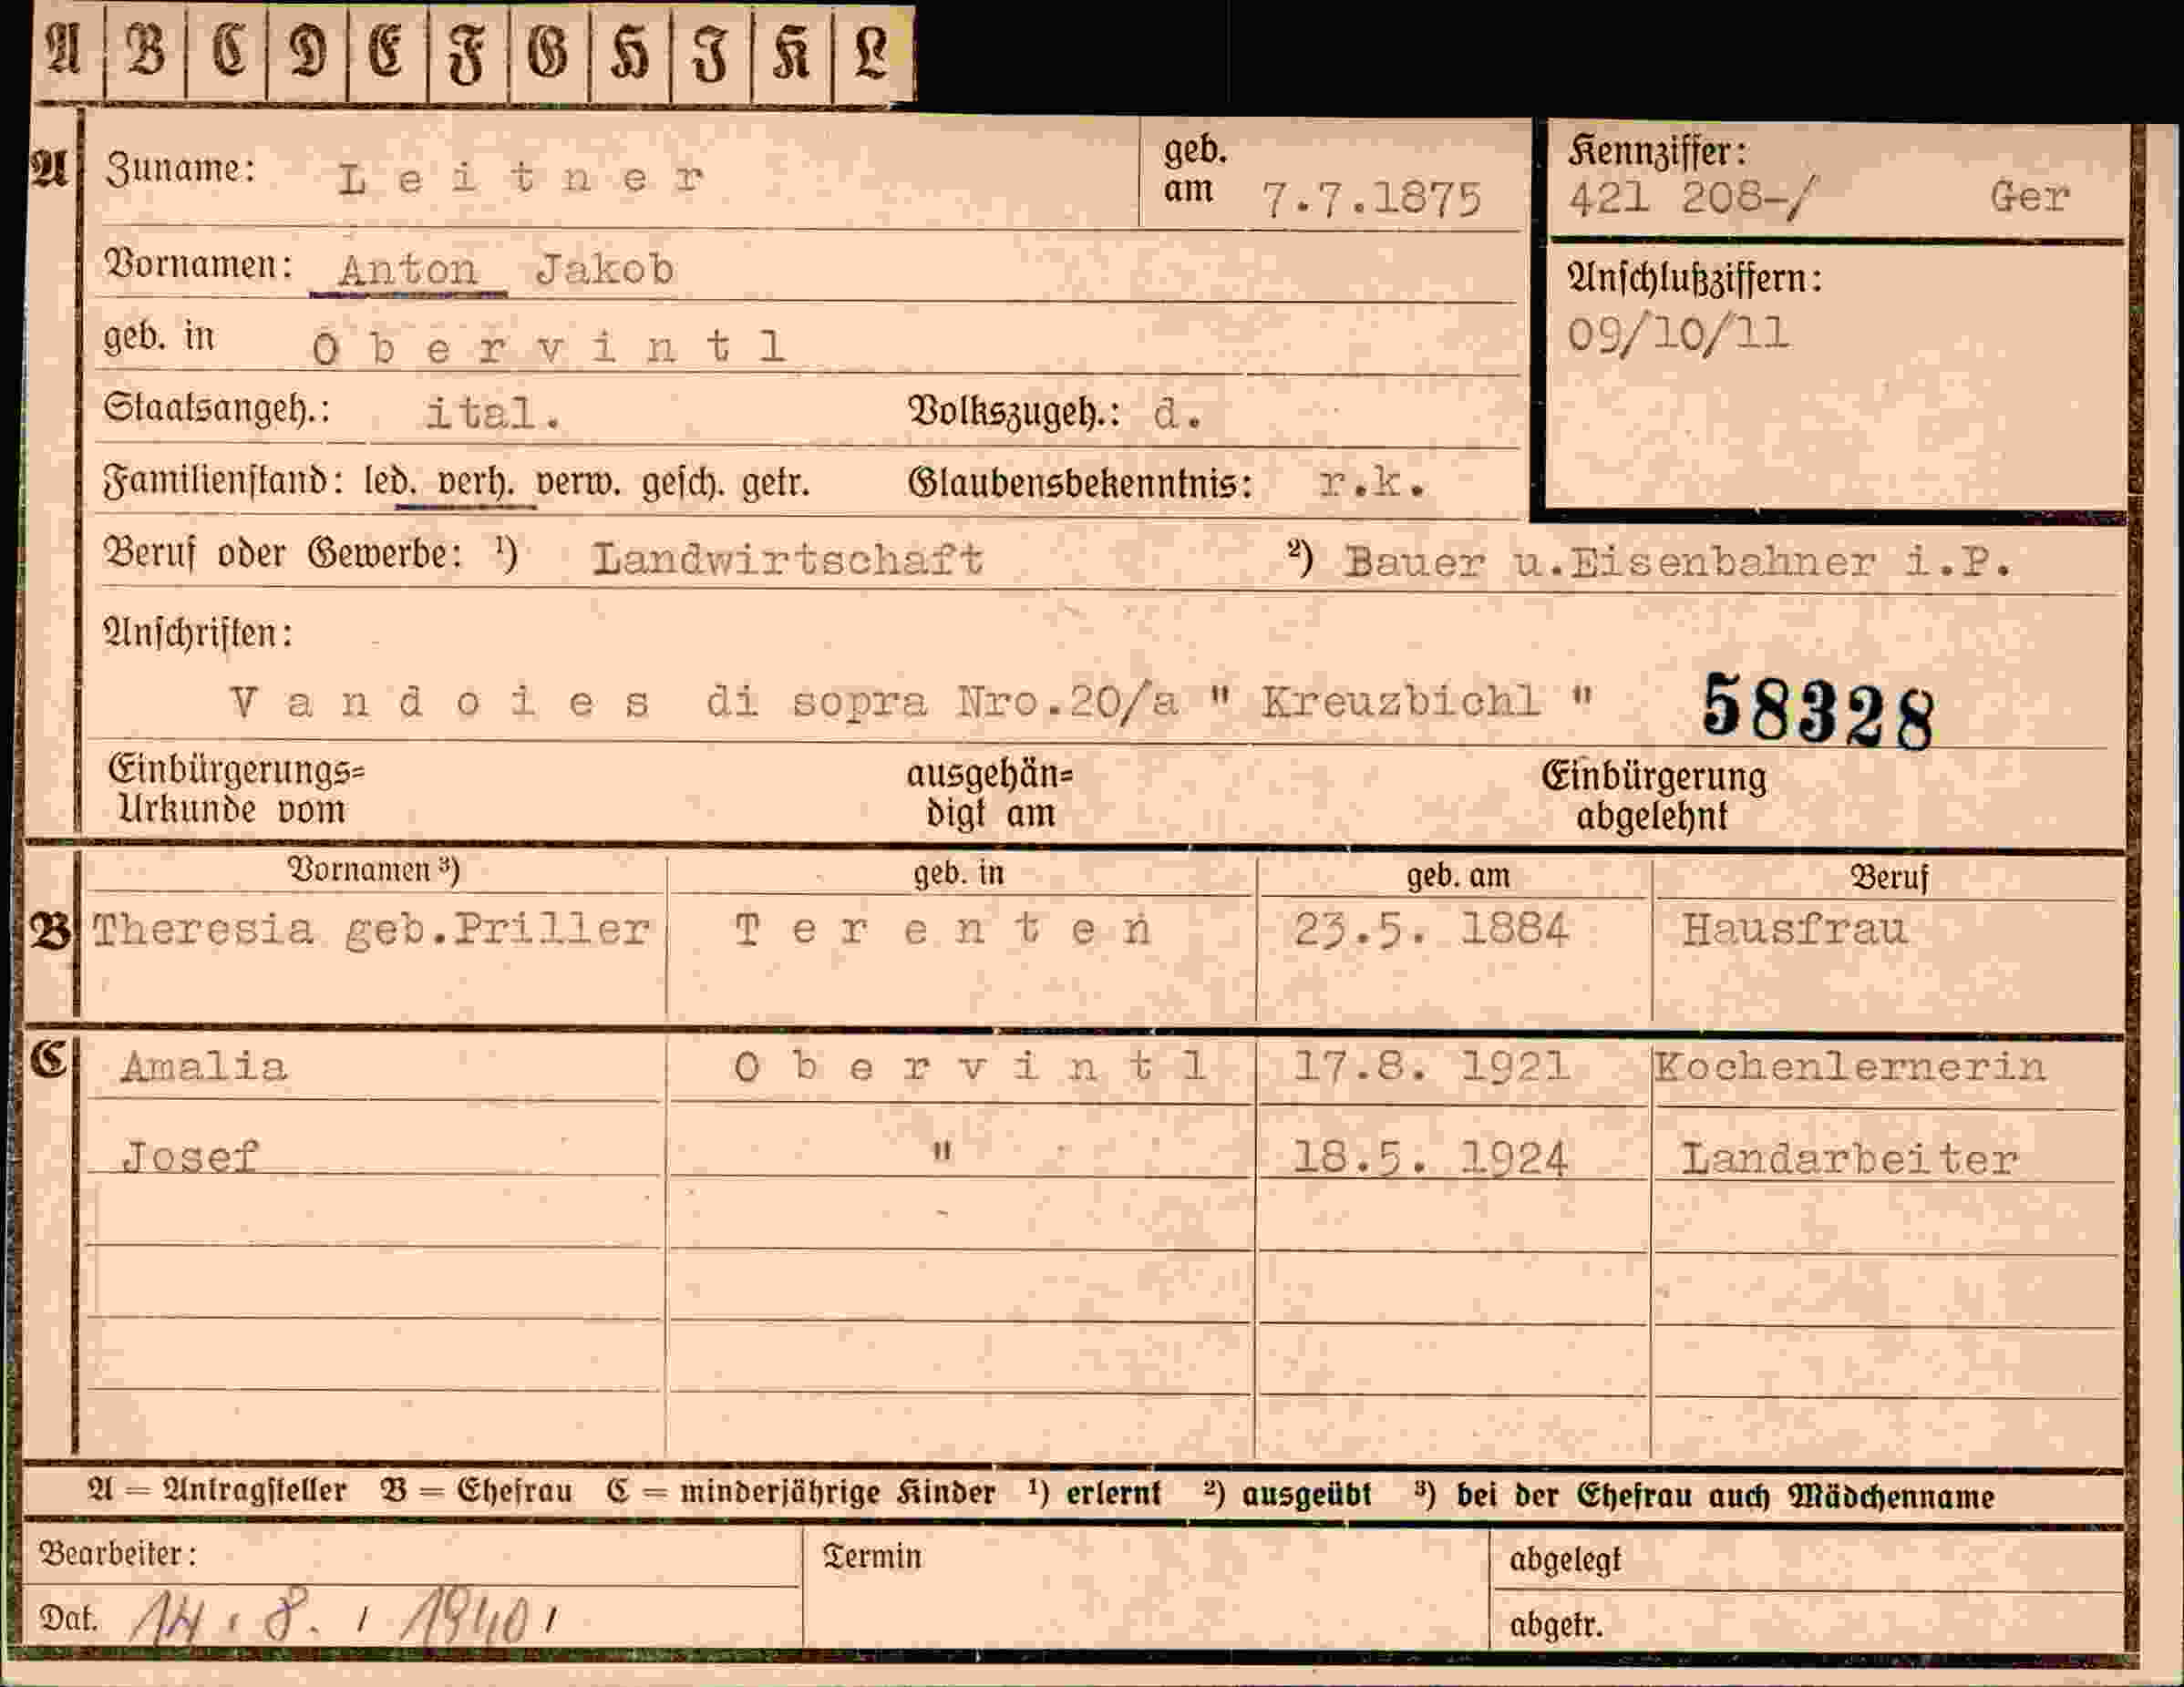 A B C D E F G H I K L
A Zuname: Leitner geb. am 7.7.1875
Kennziffer:
421 208-/ Ger
Vornamen: Anton Jakob
Anschlußziffern:
09/10/11
geb. in Obervintl
Staatsangeh.: ital. Volkszugeh.: d.
Familienstand: led. verh. verw. gesch. getr. Glaubensbekenntnis: r.k.
Beruf oder Gewerbe: ¹) Landwirtschaft ²) Bauer u.Eisenbahner i.P.
Anschriften:
Vandoies di sopra Nro.20/a " Kreuzbichl " 58328
Einbürgerungs= ausgehän= Einbürgerung
Urkunde vom digt am abgelehnt
Vornamen ³) geb. in geb. am Beruf
B Theresia geb.Priller Terenten 23.5. 1884 Hausfrau
C Amalia Obervintl 17.8. 1921 Kochenlernerin
Josef " 18.5. 1924 Landarbeiter
A = Antragsteller B = Ehefrau C = minderjährige Kinder ¹) erlernt ²) ausgeübt ³) bei der Ehefrau auch Mädchenname
Bearbeiter: Termin abgelegt
Dat. 14.8.1940 abgetr.